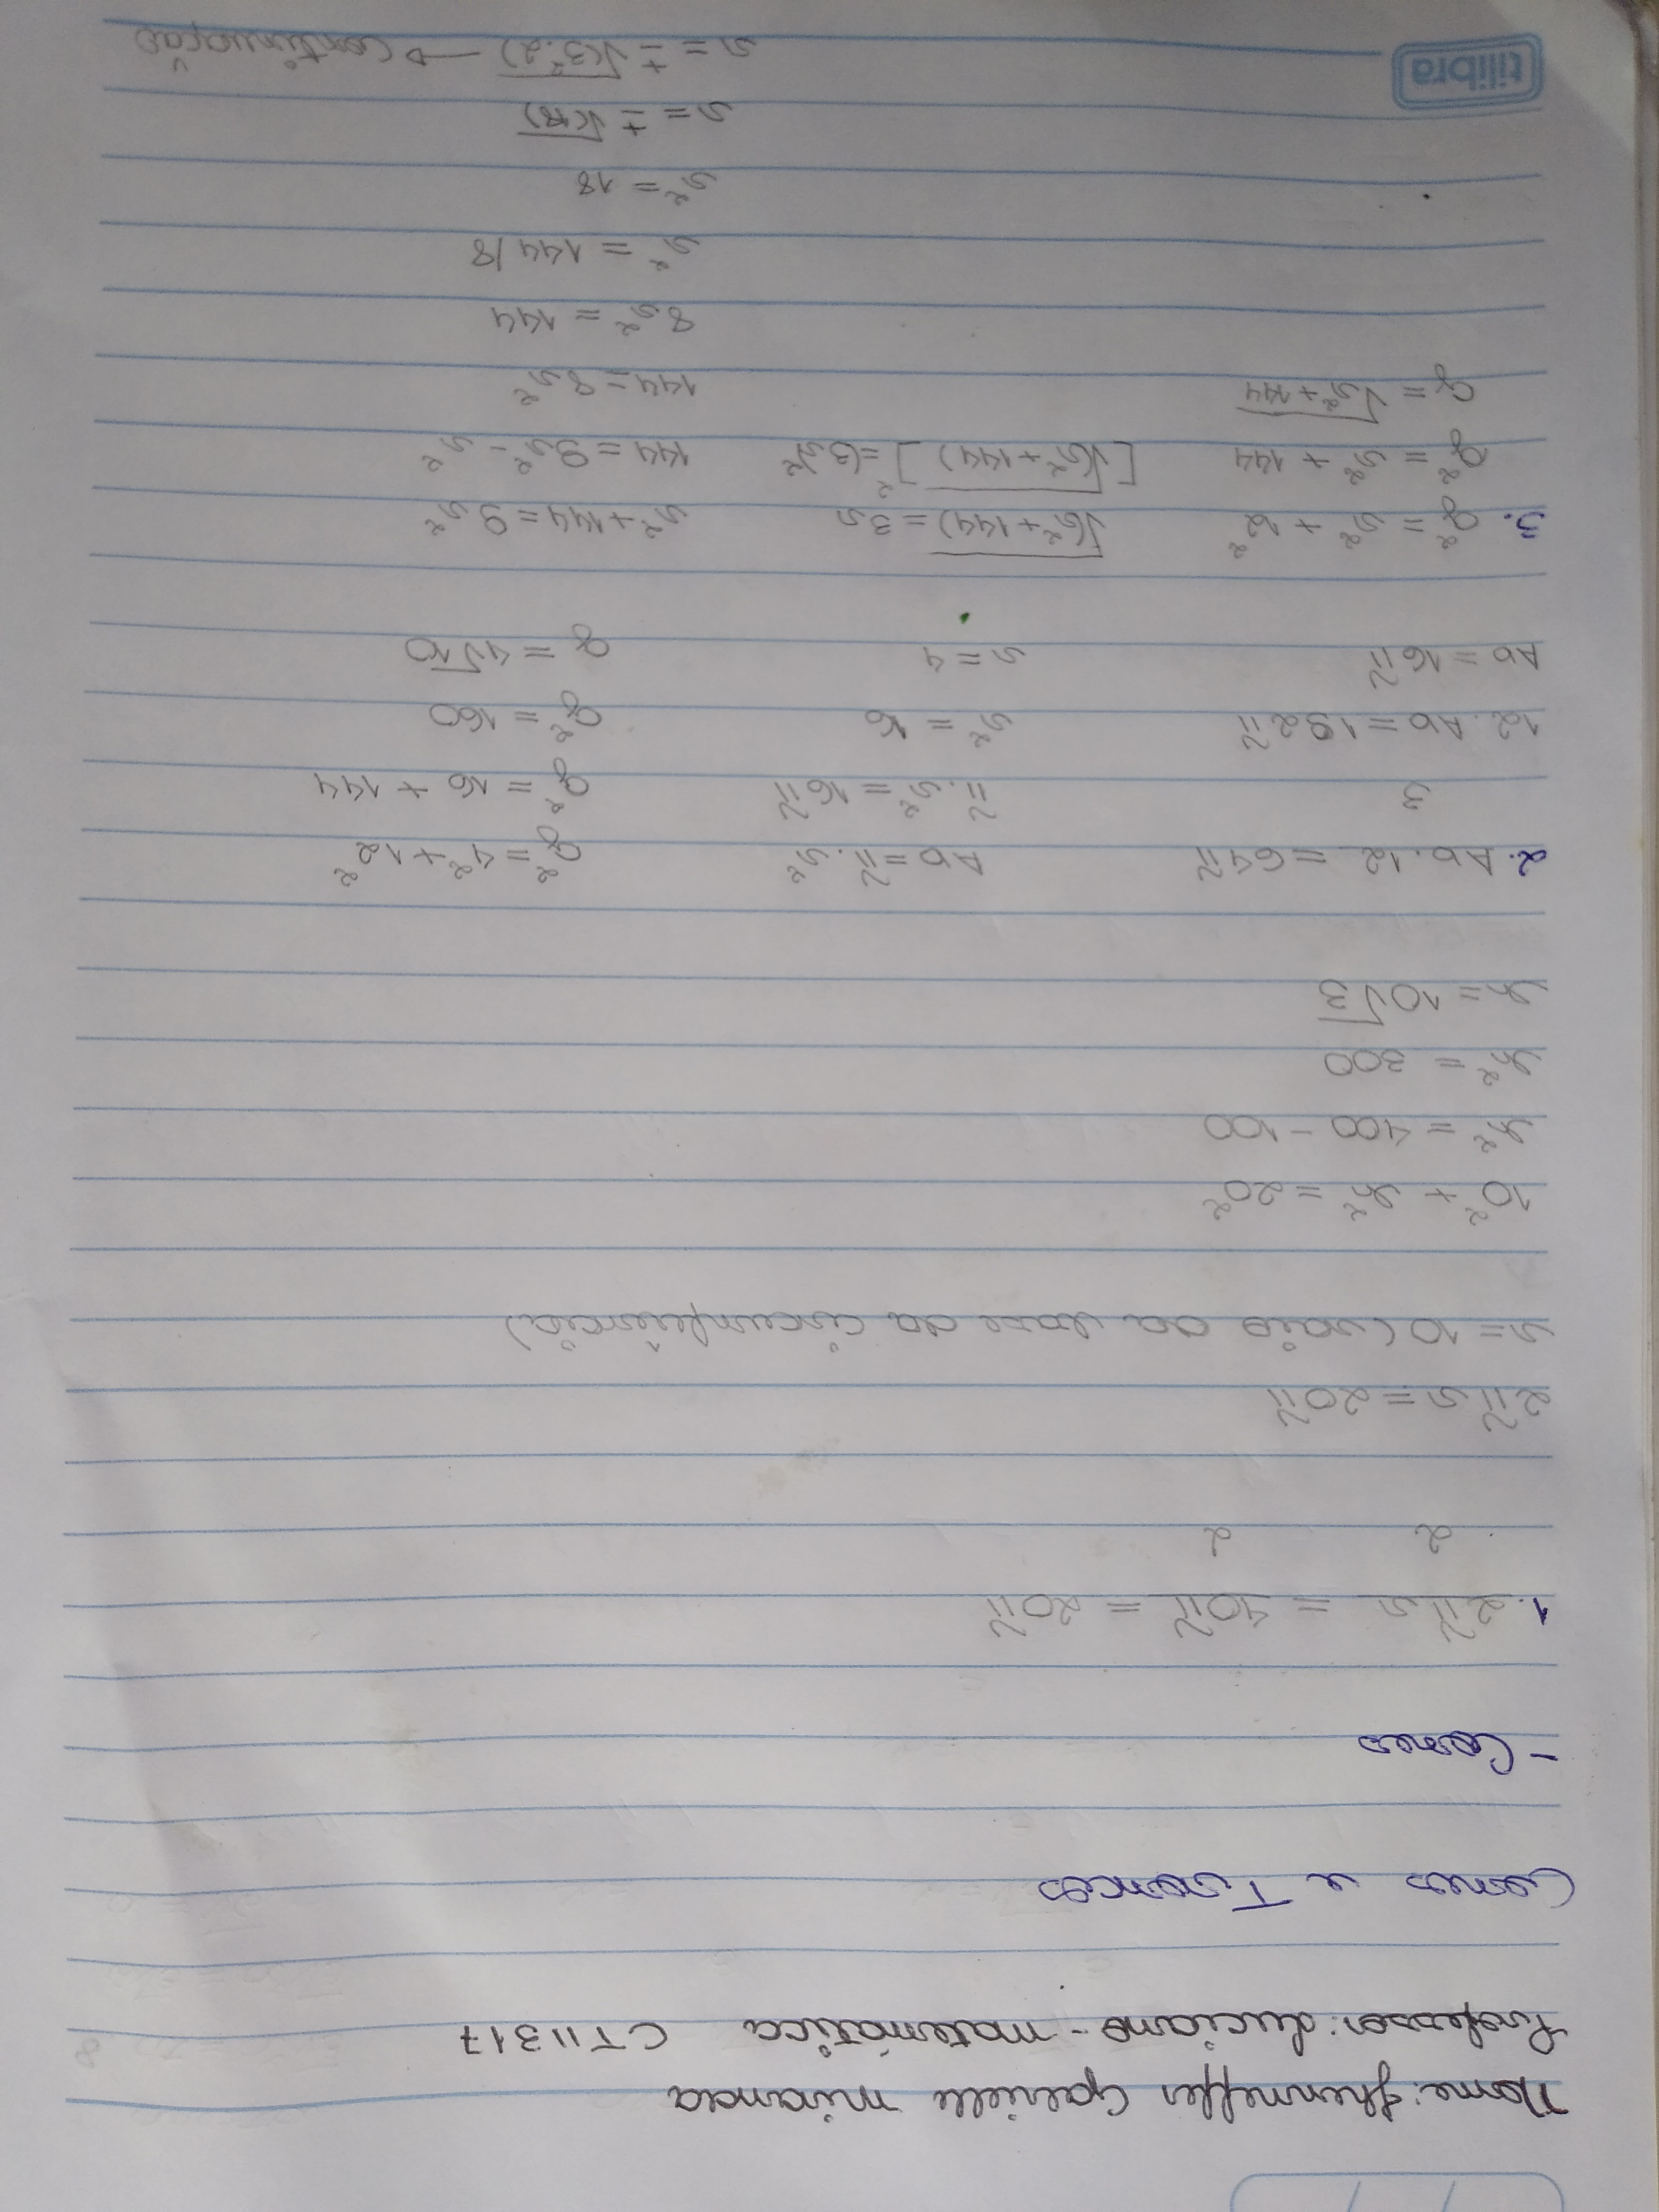 Nome: Jhenneffer Gabrielle Miranda
Professor: Luciano - matemática CTII 317
Cones e Troncos
- Cones
1. 2π r = 40π = 20π
2 2
2π r = 20π
r = 10 (raio da base da circunferência)
10² + h² = 20²
h² = 400 - 100
h² = 300
h = 10√3
2. Ab . 12 = 64π
3
12 . Ab = 192π
Ab = 16π
Ab = π . r²
π . r² = 16π
r² = 16
r = 4
g² = 4² + 12²
g² = 16 + 144
g² = 160
g = 4√10
3. g² = r² + 12²
g² = r² + 144
g = √r² + 144
√(r² + 144) = 3r
[√(r² + 144)]² = (3r)²
r² + 144 = 9r²
144 = 9r² - r²
144 = 8r²
8r² = 144
r² = 144/8
r² = 18
r = ± √(18)
r = ± √(3².2) → continuação
tilibra